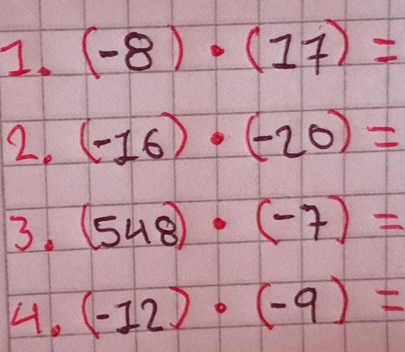 1. (-8) • (17) =
2. (-16) • (-20) =
3. (548) • (-7) =
4. (-12) • (-9) =